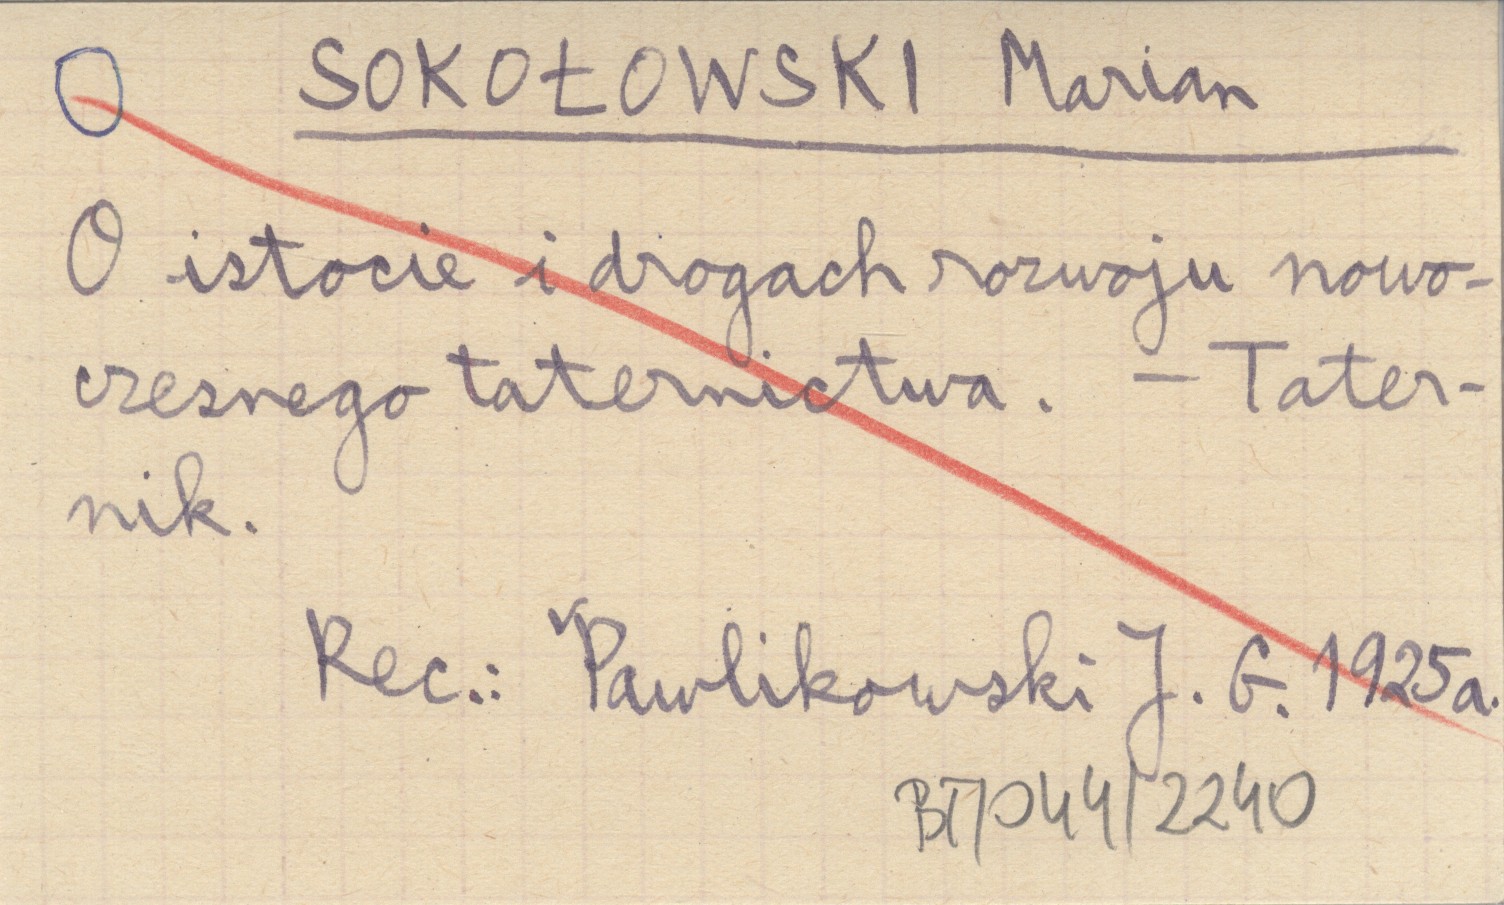 O SOKOŁOWSKI Marian
O istocie i drogach rozwoju nowo-
czesnego taternictwa. — Tater-
nik.
Rec.: Pawlikowski J. G. 1925a.
BT/044/2240